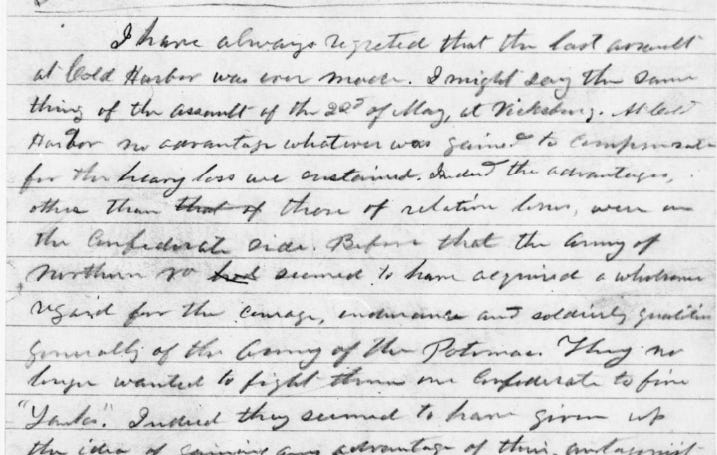 I have always regreted that the last assault
at Cold Harbor was ever made. I might say the same
thing of the assault of the 22d of May, at Vicksburg. At Cold
Harbor no advantage whatever was gained to compensate
for the heavy loss we sustained. Indeed the advantages,
other than that of those of relative losses, were on
the Confederate side. Before that the Army of
Northern Va had seemed to have acquired a wholesome
regard for the courage, endurance and soldierly qualities
generally of the Army of the Potomac. They no
longer wanted to fight them one Confederate to five
"Yanks". Indeed they seemed to have given up
the idea of gaining any advantage of their antagonist